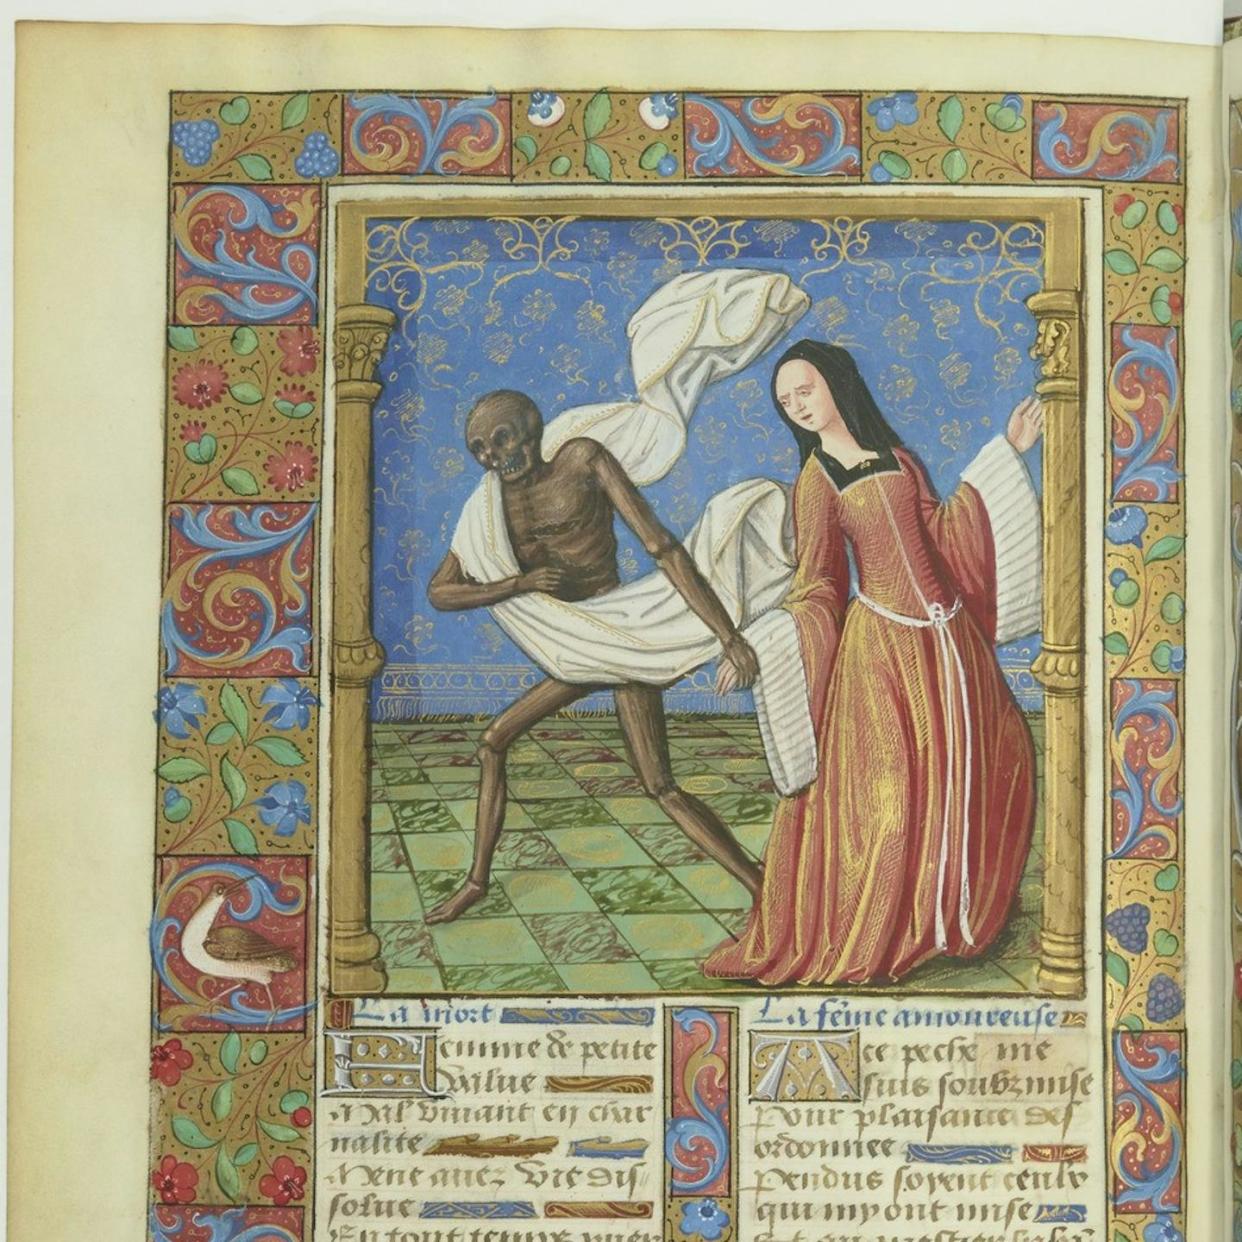 La mort
Femme de petite
value
Mal vivant en char
nalite
Mene avez vie dis
solue
En tout temps yver
La fẽme amoureuse
A ce peche me
suis soubzmise
Pour plaisance des
ordonnee
Pendus soyent ceulx
qui my ont mise
Et au mestier